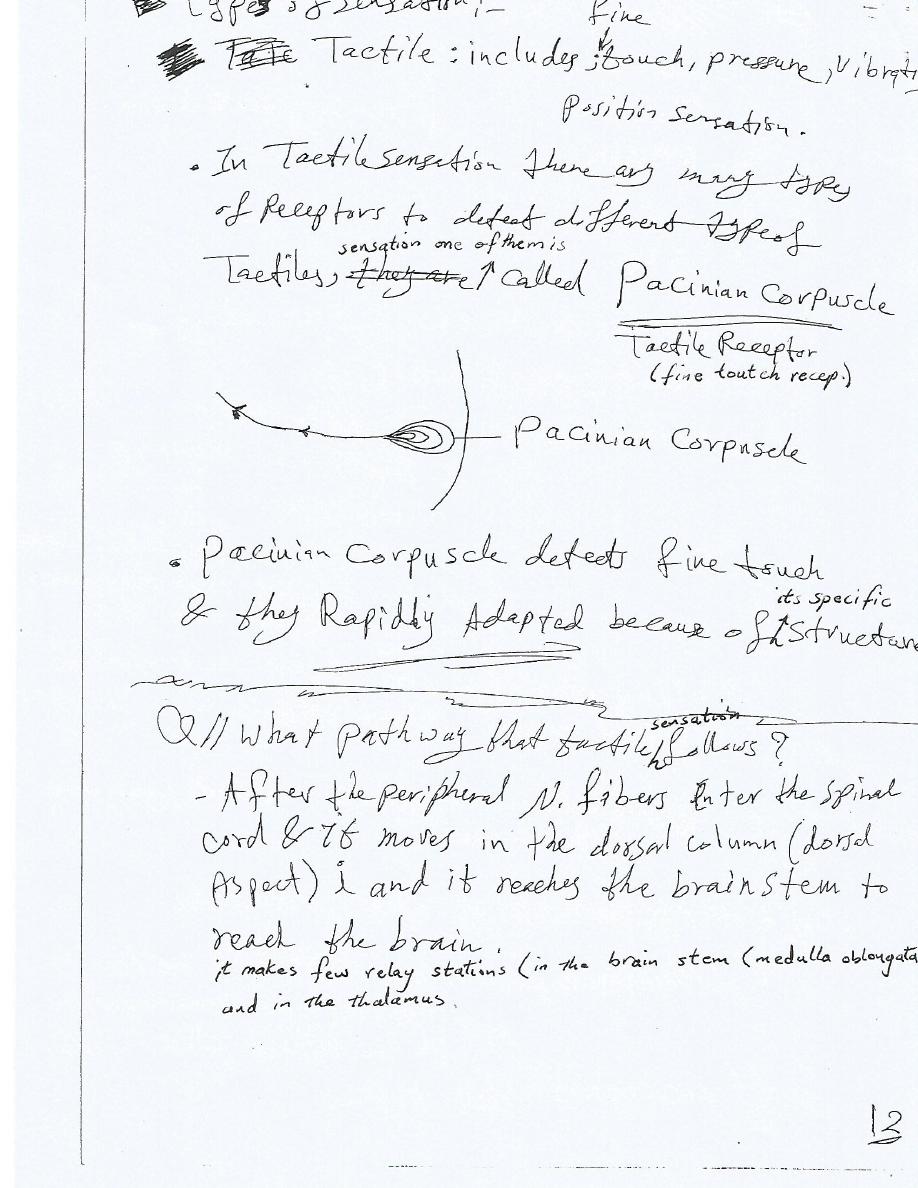 Types of sensation :-
fine
Tactile : includes ; touch, pressure, Vibrati
Position sensation.
. In Tactile sensation there are many types
of Receptors to detect different type of
sensation one of them is
Tactiles, they are ↑ Called Pacinian Corpuscle
Tactile Receptor
(fine toutch recep.)
Pacinian Corpuscle
. Pacinian Corpuscle detects fine touch
its specific
& they Rapidly Adapted because of ↑ Structure
sensation
Q// What pathway that tactile follows ?
- After the peripheral N. fibers Enter the spinal
cord & it moves in the dorsal column (dorsal
Aspect) i and it reaches the brain stem to
reach the brain.
it makes few relay stations (in the brain stem (medulla oblongata
and in the thalamus.
12